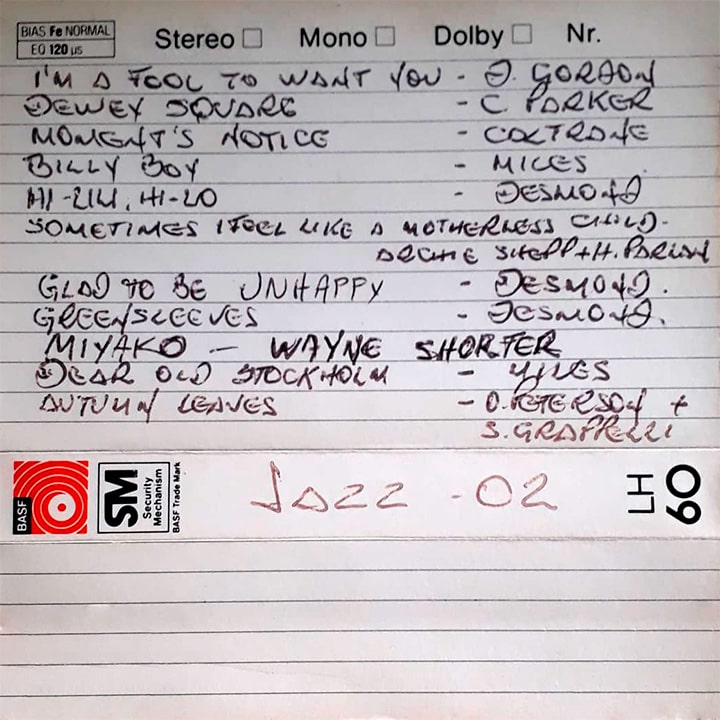 BIAS Fe NORMAL
EQ 120 µs
Stereo Mono Dolby Nr.
I'M A FOOL TO WANT YOU - D. GORDON
DEWEY SQUARE - C. PARKER
MOMENT'S NOTICE - COLTRANE
BILLY BOY - MILES
HI-LILI, HI-LO - DESMOND
SOMETIMES I FEEL LIKE A MOTHERLESS CHILD -
ARCHIE SHEPP + H. PARLAN
GLAD TO BE UNHAPPY - DESMOND.
GREENSLEEVES - DESMOND.
MIYAKO - WAYNE SHORTER
DEAR OLD STOCKHOLM - MILES
AUTUMN LEAVES - O. PETERSON +
S. GRAPPELLI
BASF
SM
Security
Mechanism
BASF Trade Mark
JAZZ - 02
LH
60